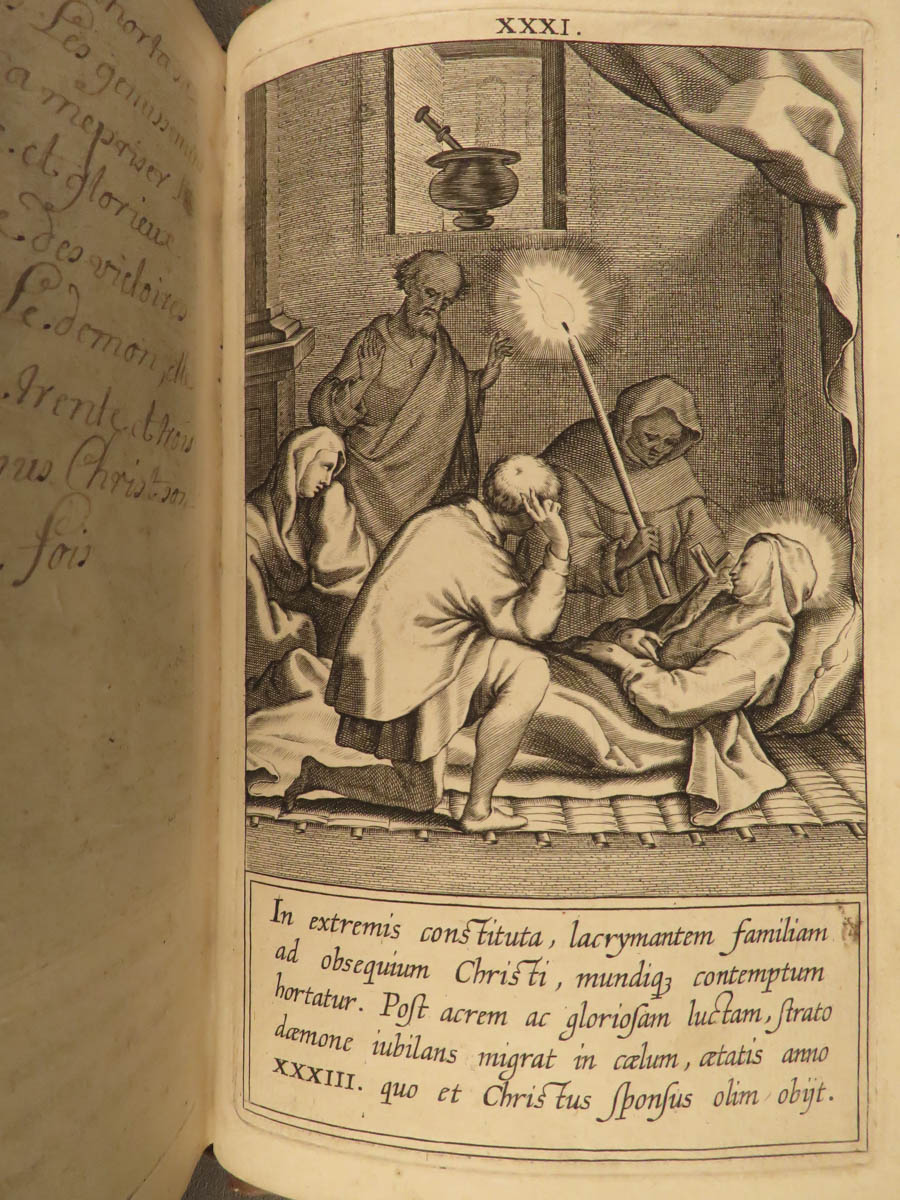 horta
Les
a mepriser
et glorieux
des victoires
Le demon elle
trente et trois
Christ son
fois
XXXI.
In extremis constituta, lacrymantem familiam
ad obsequium Christi, mundiqꝫ contemptum
hortatur. Poſt acrem ac glorioſam luctam, ſtrato
dæmone iubilans migrat in cælum, ætatis anno
XXXIII. quo et Christus ſponſus olim obijt.